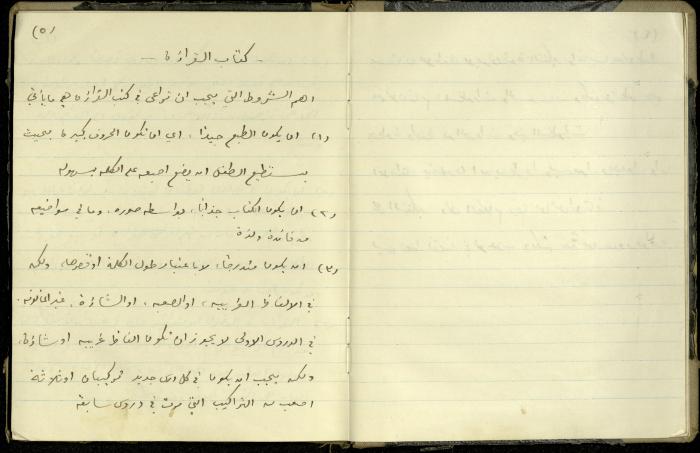 (٥)
- كتاب القراءة -
اهم الشروط التي يجب ان تراعى في كتب القراءة هي ما يأتي
(١) ان يكون الطبع جيداً، اي ان تكون الحروف كبيرة بحيث
يستطيع الطفل ان يضع اصبعه على الكلمه بسهوله
(٢) ان يكون الكتاب جذاباً، بواسطه صوره، وما في مواضيعه
من فائدة ولذة
(٣) ان يكون متدرجاً، لا باعتبار طول الكلمة او قصرها، ولكن
في الالفاظ الغريبه، او الصعبه، او الشاذة، غير القانونيه.
في الدروس الاولى لا يجوز ان تكون الفاظ غريبه او شاذة،
ولكن يجب ان يكون في كل درس جديد تركيبان او ثلاثة
اصعب من التراكيب التي مرت في دروس سابقة